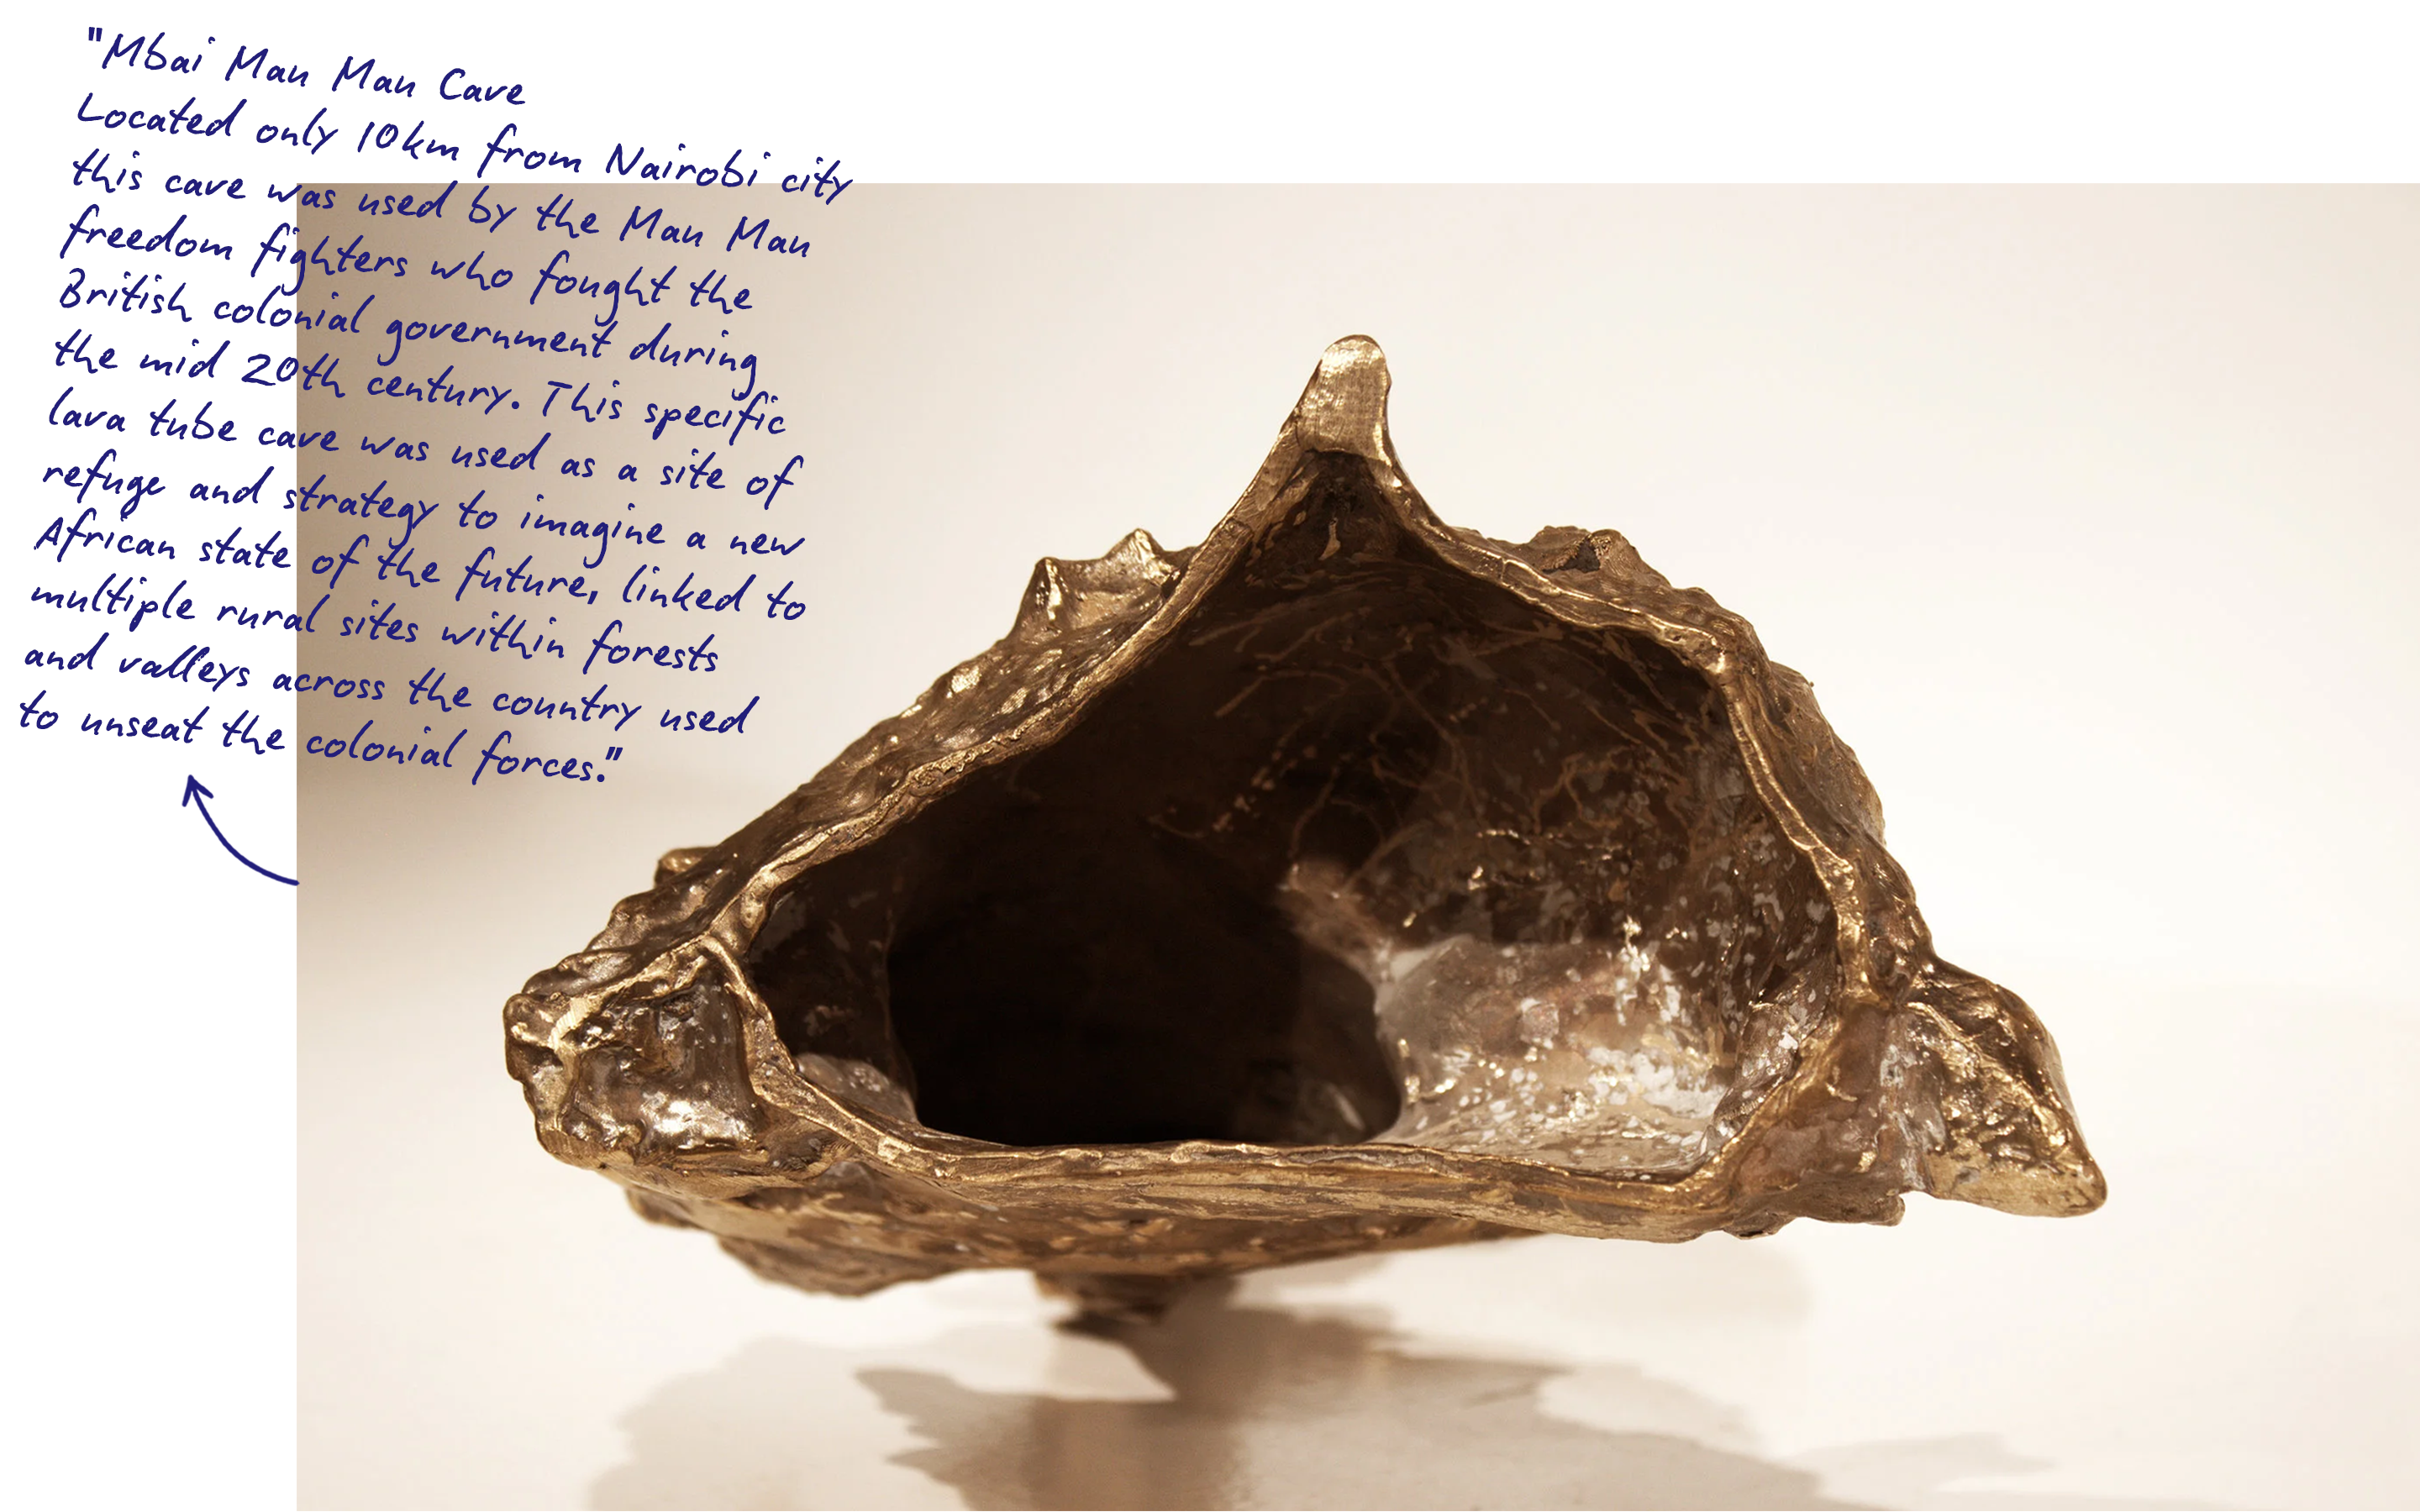 "Mbai Mau Mau Cave
Located only 10km from Nairobi city
this cave was used by the Mau Mau
freedom fighters who fought the
British colonial government during
the mid 20th century. This specific
lava tube cave was used as a site of
refuge and strategy to imagine a new
African state of the future, linked to
multiple rural sites within forests
and valleys across the country used
to unseat the colonial forces."